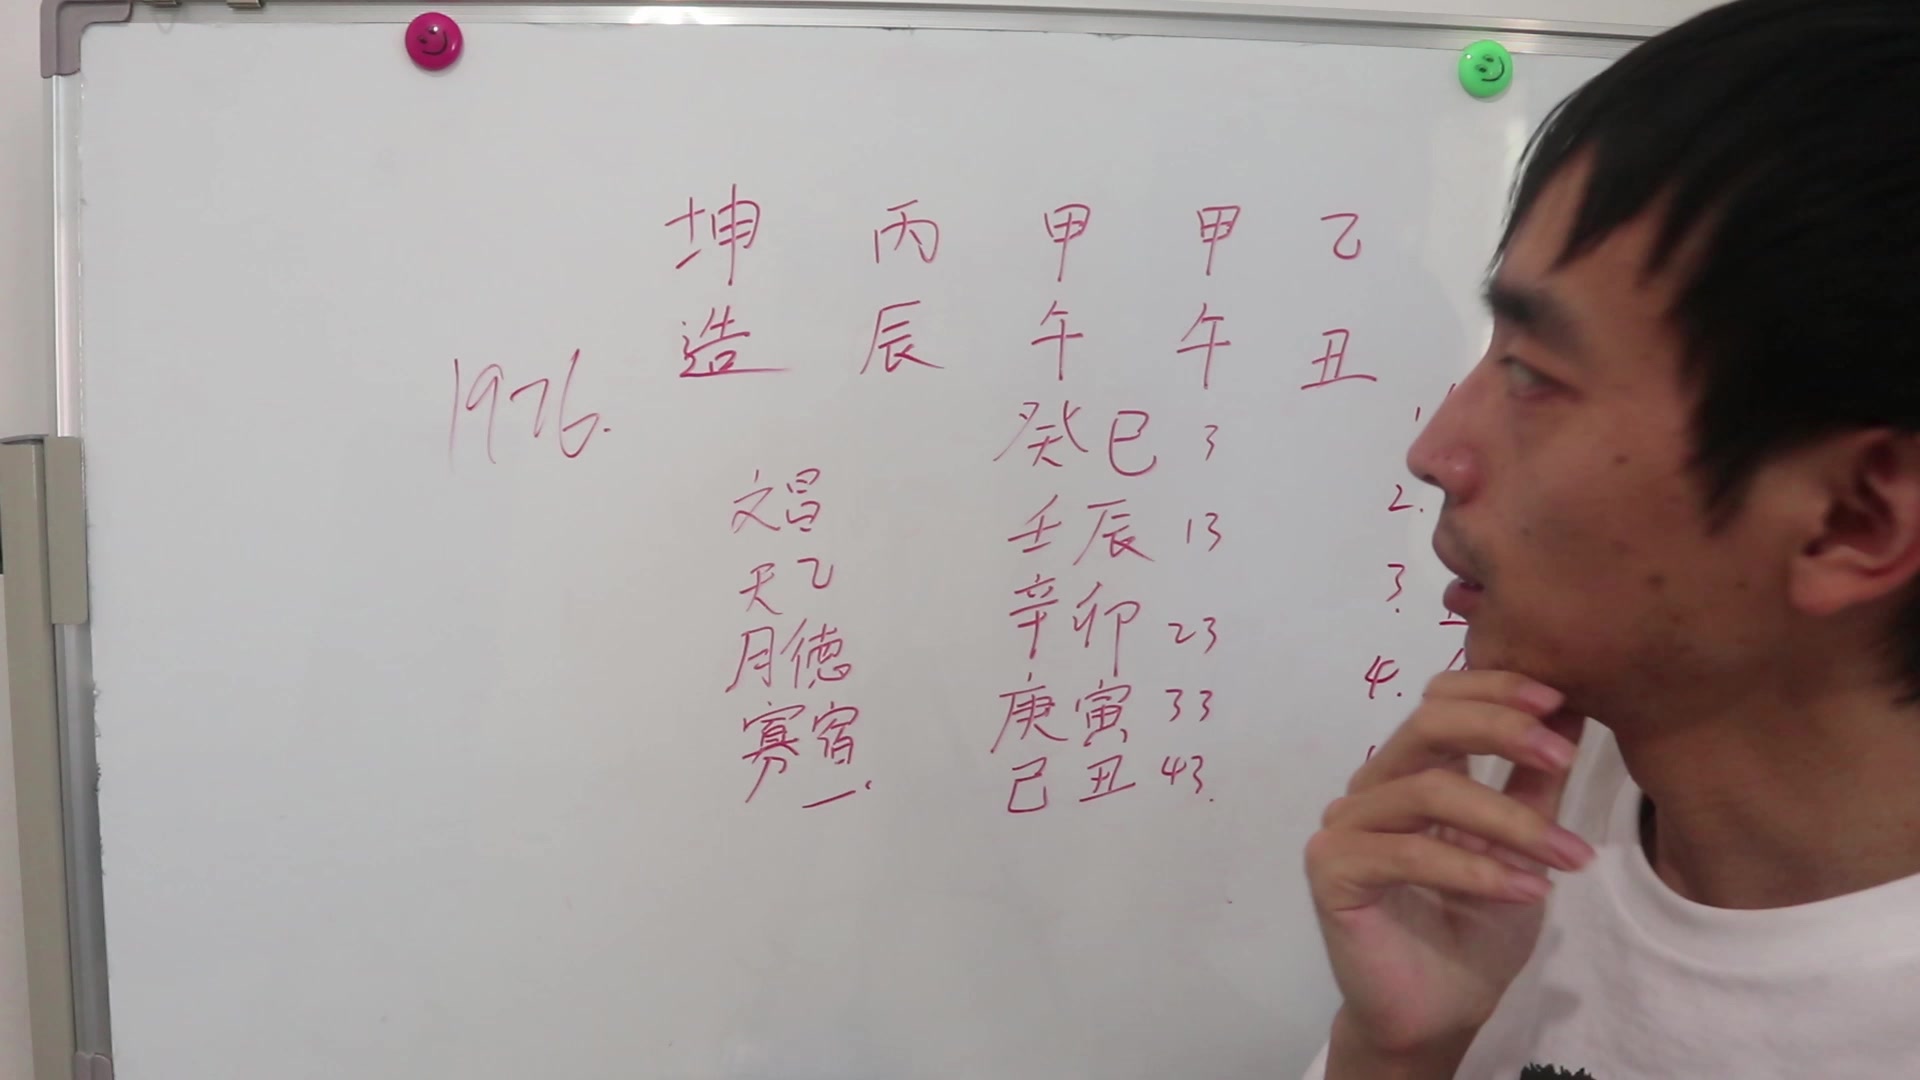 坤 丙 甲 甲 乙
造 辰 午 午 丑
1976.
癸巳 3
壬辰 13
辛卯 23
庚寅 33
己丑 43.
文昌
天乙
月德
寡宿
2.
3.
4.